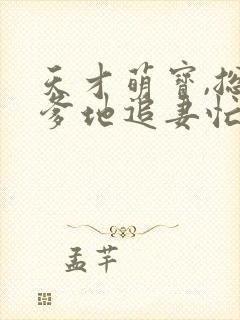 天才萌寶,總
爹地追妻忙
孟芊